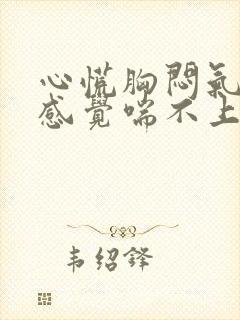 心慌胸悶氣
感覺喘不上
韦绍锋